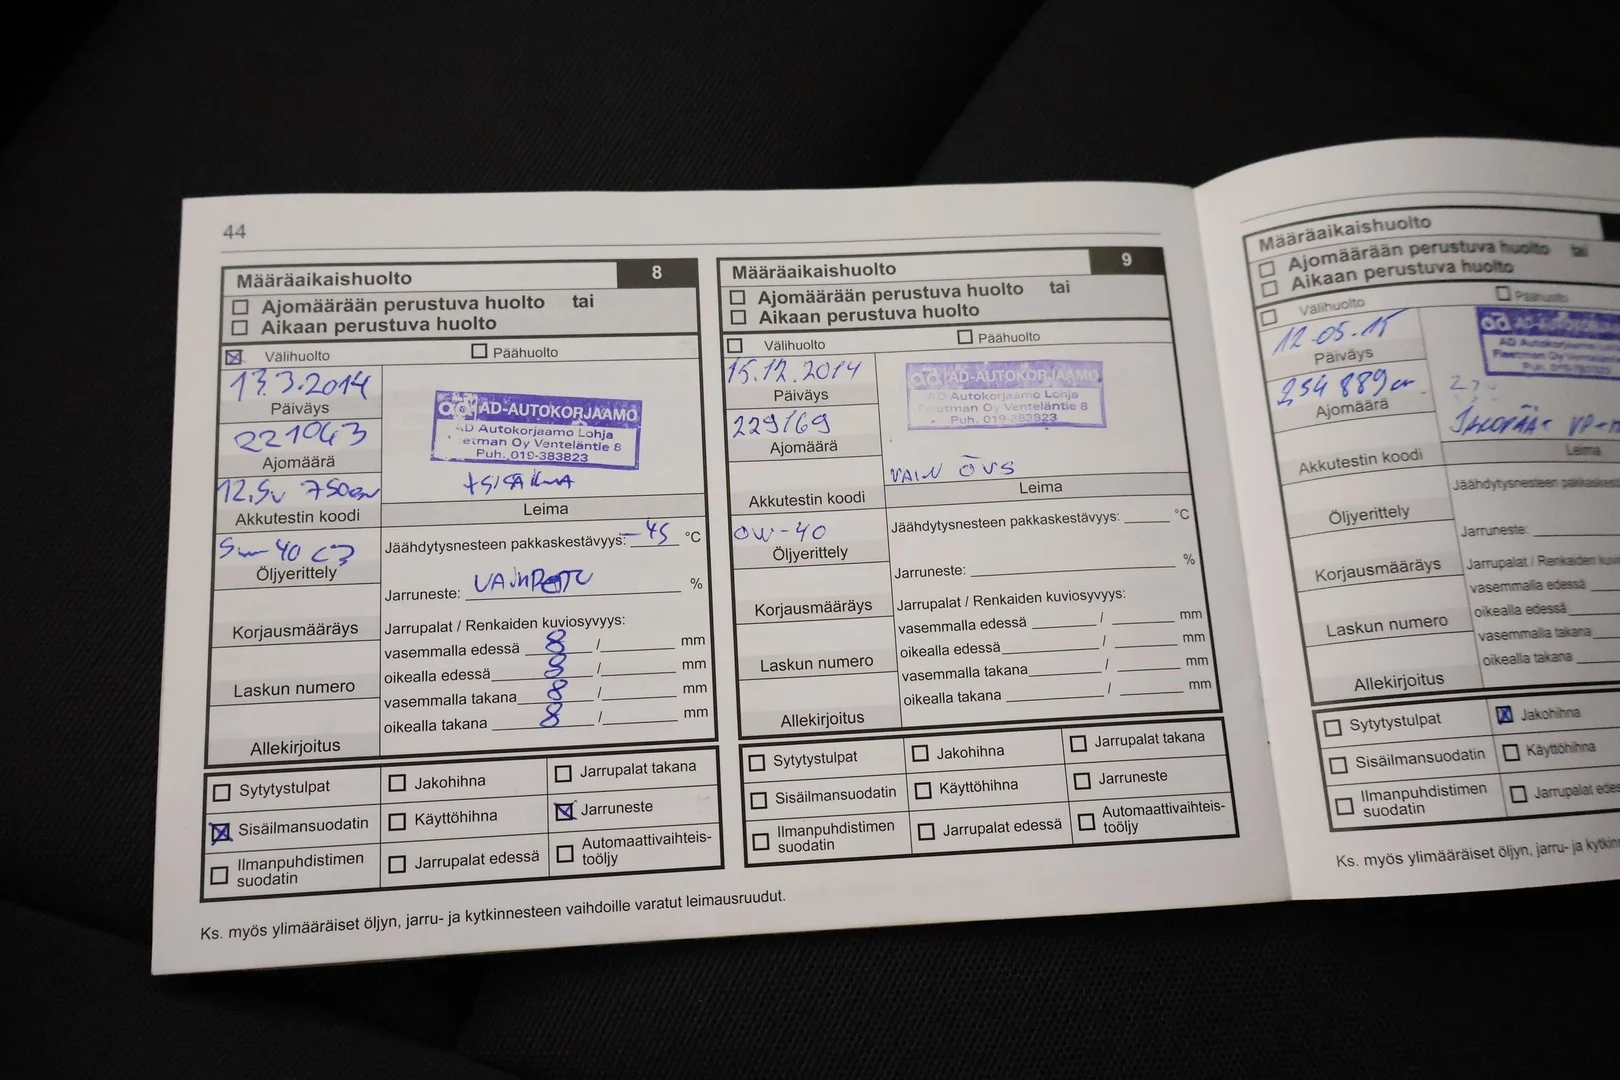 44
Määräaikaishuolto 8
Ajomäärään perustuva huolto tai
Aikaan perustuva huolto
Välihuolto Päähuolto
13.3.2014
Päiväys
221043
Ajomäärä
12,5v 750en
Akkutestin koodi
AD-AUTOKORJAAMO
AD Autokorjaamo Lohja
Fleetman Oy Venteläntie 8
Puh. 019-383823
+SISÄILMA
Leima
5w-40 C3
Öljyerittely
Korjausmääräys
Laskun numero
Allekirjoitus
Jäähdytysnesteen pakkaskestävyys: -45 °C
Jarruneste: VAIHDETTU %
Jarrupalat / Renkaiden kuviosyvyys:
vasemmalla edessä 8 / mm
oikealla edessä 8 / mm
vasemmalla takana 8 / mm
oikealla takana 8 / mm
Sytytystulpat Jakohihna Jarrupalat takana
Sisäilmansuodatin Käyttöhihna Jarruneste
Ilmanpuhdistimen suodatin Jarrupalat edessä Automaattivaihteis-
toöljy
Ks. myös ylimääräiset öljyn, jarru- ja kytkinnesteen vaihdoille varatut leimausruudut.
Määräaikaishuolto 9
Ajomäärään perustuva huolto tai
Aikaan perustuva huolto
Välihuolto Päähuolto
15.12.2014
Päiväys
229169
Ajomäärä
Akkutestin koodi
AD-AUTOKORJAAMO
AD Autokorjaamo Lohja
Fleetman Oy Venteläntie 8
Puh. 019-383823
VAIN ÖVS
Leima
0W-40
Öljyerittely
Korjausmääräys
Laskun numero
Allekirjoitus
Jäähdytysnesteen pakkaskestävyys: °C
Jarruneste: %
Jarrupalat / Renkaiden kuviosyvyys:
vasemmalla edessä / mm
oikealla edessä / mm
vasemmalla takana / mm
oikealla takana / mm
Sytytystulpat Jakohihna Jarrupalat takana
Sisäilmansuodatin Käyttöhihna Jarruneste
Ilmanpuhdistimen suodatin Jarrupalat edessä Automaattivaihteis-
toöljy
Määräaikaishuolto
Ajomäärään perustuva huolto tai
Aikaan perustuva huolto
Välihuolto Päähuolto
12.05.15
Päiväys
254 889
Ajomäärä
Akkutestin koodi
Leima
Öljyerittely
Korjausmääräys
Laskun numero
Allekirjoitus
Jäähdytysnesteen
Jarruneste:
Jarrupalat / Renkaiden
vasemmalla edessä
oikealla edessä
vasemmalla takana
oikealla takana
Sytytystulpat Jakohihna
Sisäilmansuodatin Käyttöhihna
Ilmanpuhdistimen suodatin Jarrupalat
Ks. myös ylimääräiset öljyn, jarru- ja